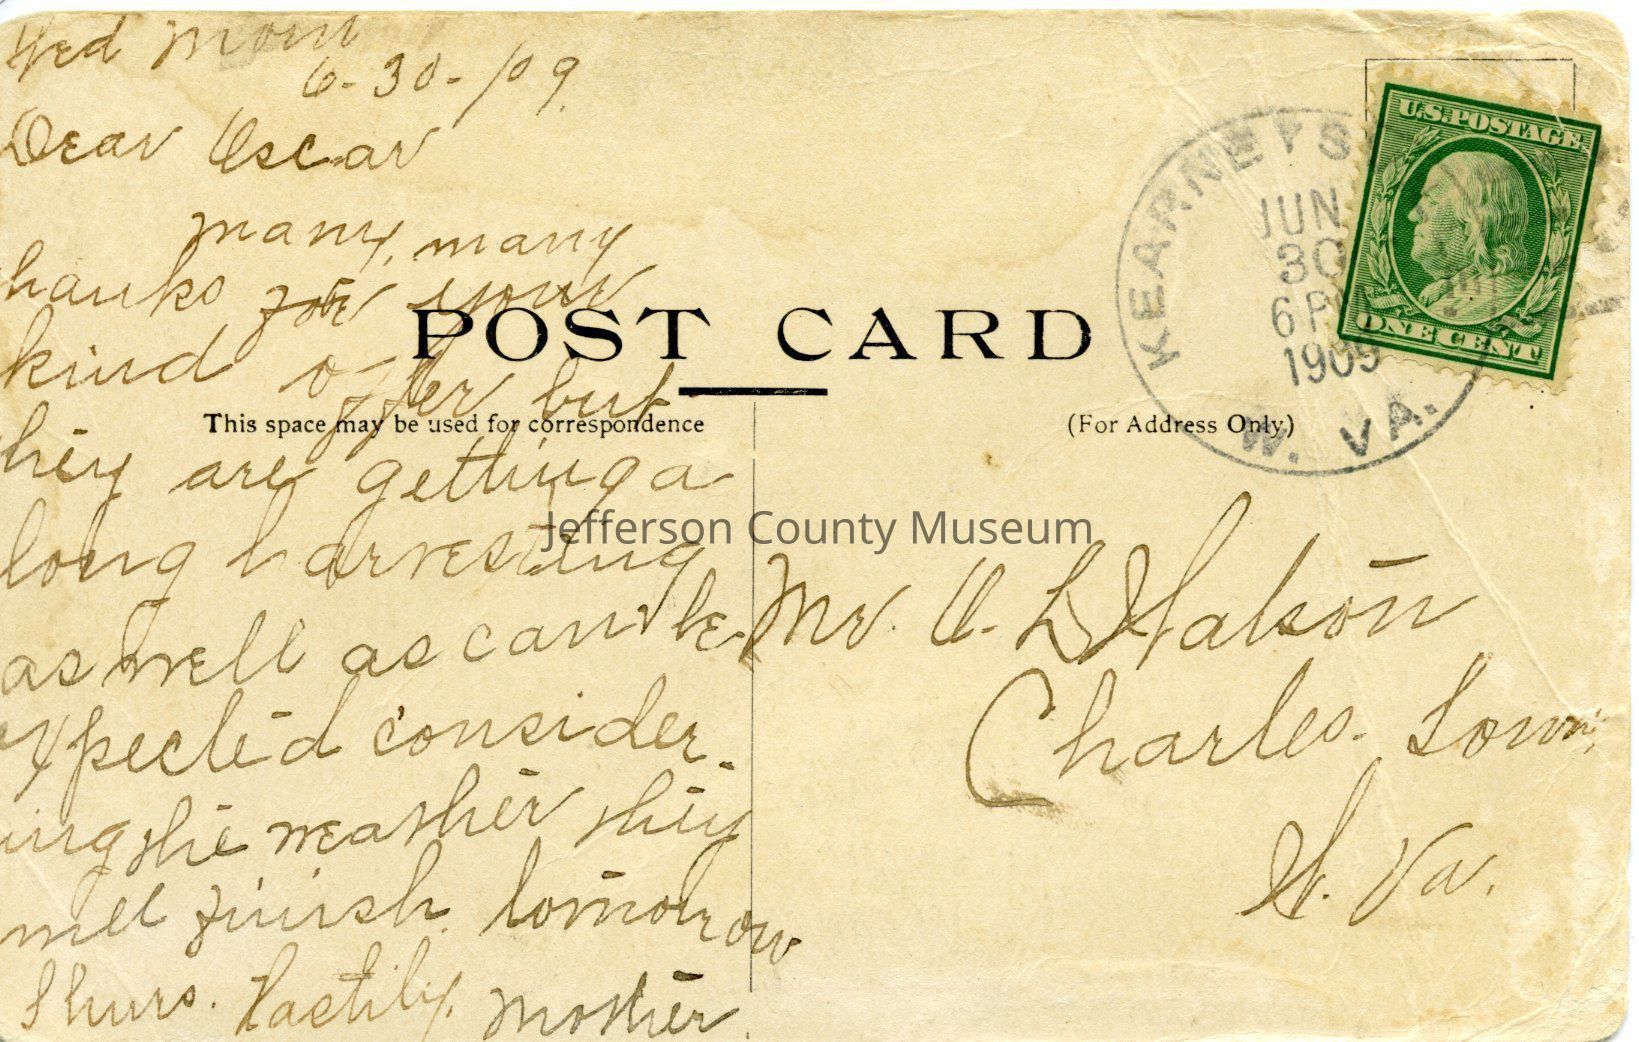 Wed Morn
6-30-/09.
Dear Oscar
many, many
hanks for your
kind offer but
hey are getting a
long harvesting
as well as can be
expected consider-
ing the weather they
will finish tomorrow
Thurs. Hastily, Mother.
POST CARD
This space may be used for correspondence
(For Address Only)
KEARNEYS
JUN
30
6 P
1909
W. VA.
U.S. POSTAGE
ONE CENT
Jefferson County Museum
Mr. O. L. Watson
Charles Town,
W. Va.